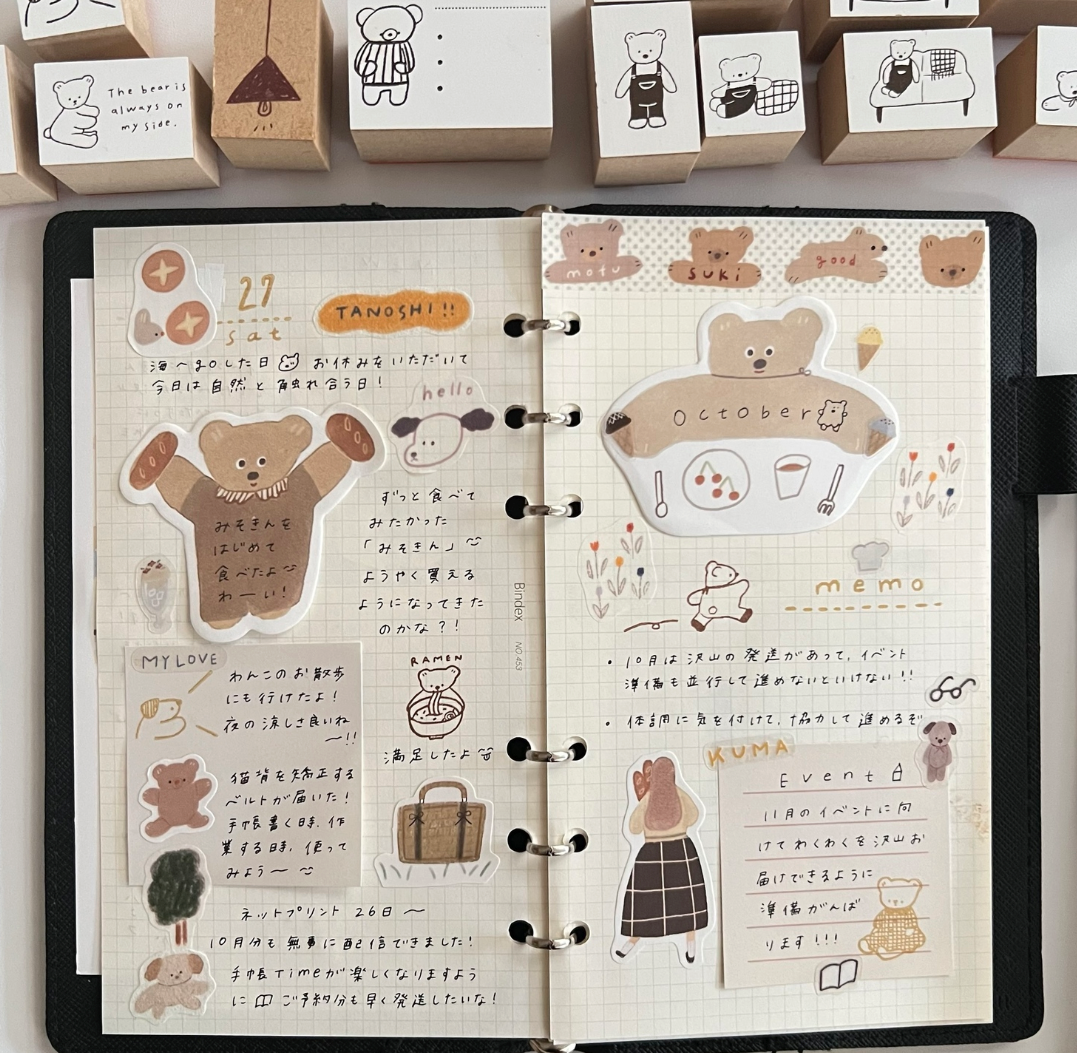 The bear is
always on
my side.
27
sat
TANOSHI!!
海へgoした日 お休みをいただいて
今日は自然と触れ合う日！
hello
みそきんを
はじめて
食べたよ
わーい！
ずっと食べて
みたかった
「みそきん」
ようやく買える
ようになってきた
のかな？！
MY LOVE
わんこのお散歩
にも行けたよ！
夜の涼しさ良いね
〜!!
猫背を矯正する
ベルトが届いた！
手帳書く時、作
業する時、使って
みよう〜
RAMEN
満足したよ
ネットプリント 26日〜
10月分も無事に配信できました！
手帳Timeが楽しくなりますよう
に ご予約分も早く発送したいな！
Bindex NO.453
motu
suki
good
October
memo
・10月は沢山の発送があって、イベント
準備も並行して進めないといけない!!
・体調に気を付けて、協力して進めるぞ
KUMA
Event
11月のイベントに向
けてわくわくを沢山お
届けできるように
準備がんば
ります!!!